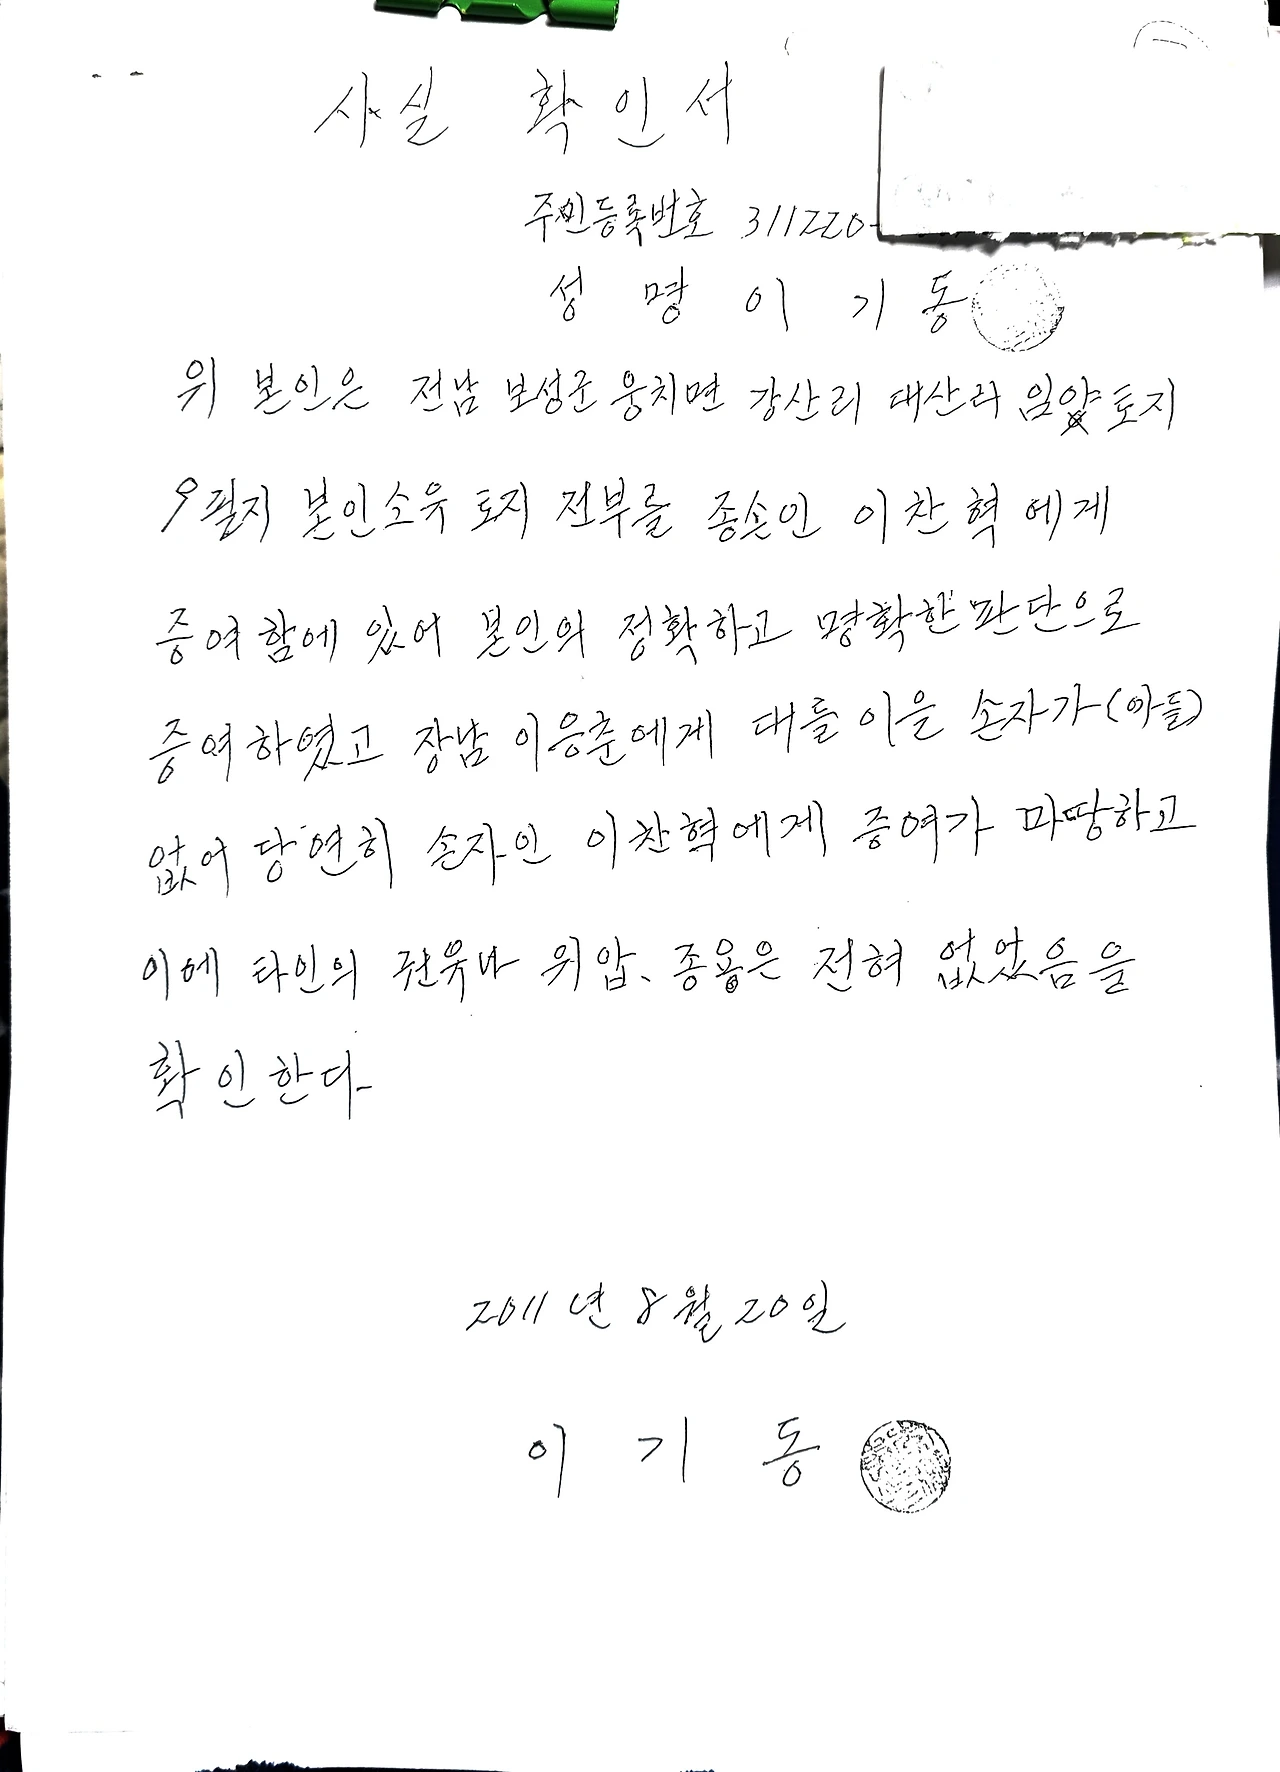 사실 확인서
주민등록번호 311220-
성 명 이 기 동
위 본인은 전남 보성군 웅치면 강산리 대산리 임야 토지
9필지 본인소유 토지 전부를 종손인 이찬혁에게
증여함에 있어 본인의 정확하고 명확한 판단으로
증여하였고 장남 이응춘에게 대를 이을 손자가(아들)
없어 당연히 손자인 이찬혁에게 증여가 마땅하고
이에 타인의 권유나 위압、종용은 전혀 없었음을
확인한다.
2011년 8월 20일
이 기 동